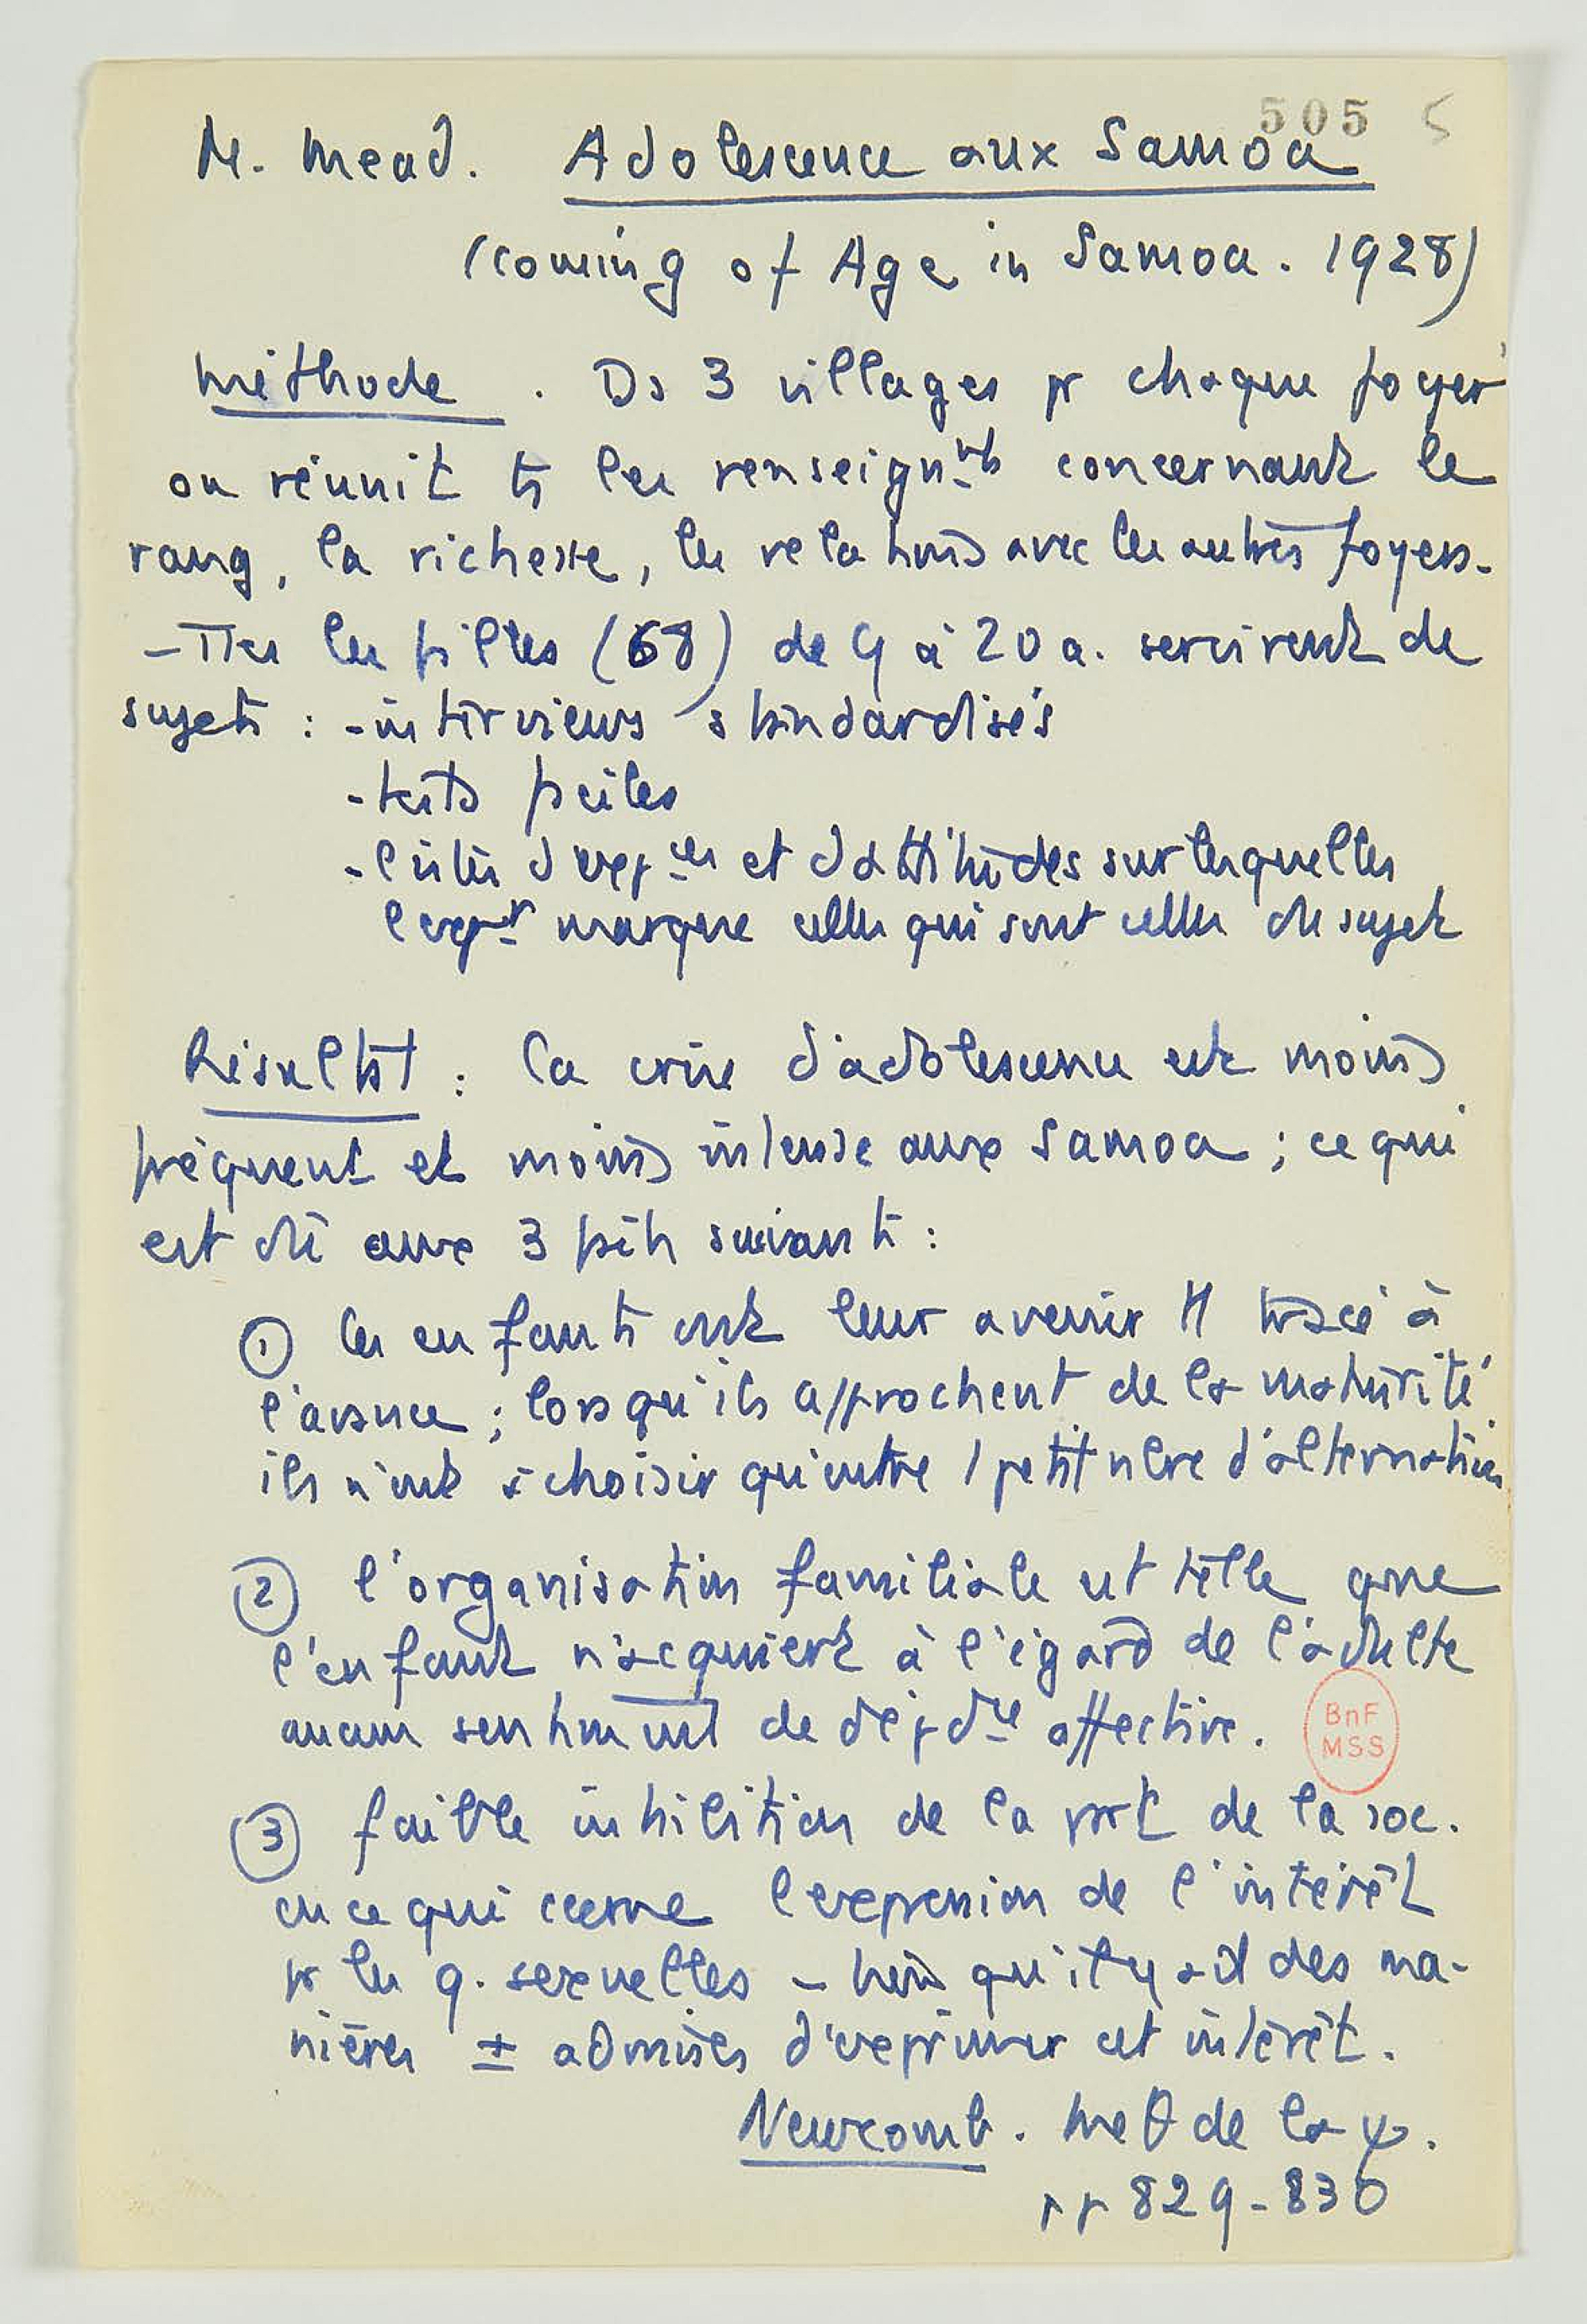 505 5
M. Mead. Adolescence aux Samoa
(Coming of Age in Samoa. 1928)
Méthode. Ds 3 villages pr chaque foyer
on réunit ts les renseignmts concernant le
rang, la richesse, les relations avec les autres foyers.
- Ttes les filles (68) de 9 à 20 a. servirent de
sujets : - interviews standardisés
- tests faciles
- listes d'expces et d'attitudes sur lesquelles
l'expr marque celles qui sont celles du sujet
Résultat : la crise d'adolescence est moins
fréquent et moins intense aux Samoa ; ce qui
est dû aux 3 faits suivants :
① les enfants ont leur avenir tt tracé à
l'avance ; lorsqu'ils approchent de la maturité
ils n'ont à choisir qu'entre 1 petit nbre d'alternatives
② l'organisation familiale est telle que
l'enfant n'acquiert à l'égard de l'adulte
aucun sentiment de dépdce affective.
BnF
MSS
③ faible inhibition de la part de la soc.
en ce qui ccerne l'expression de l'intérêt
pr les q. sexuelles - bien qu'il y ait des ma-
nières ± admises d'exprimer cet intérêt.
Newcomb. Meθ de la ψ.
pp 829-830